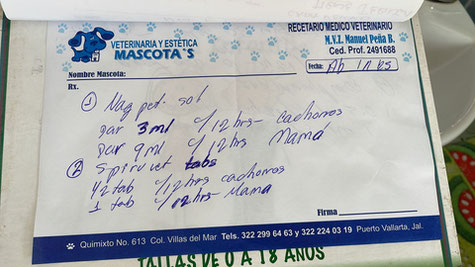 RECETARIO MÉDICO VETERINARIO
VETERINARIA Y ESTÉTICA
MASCOTA'S
M.V.Z. Manuel Peña B.
Ced. Prof. 2491688
Fecha:
Nombre Mascota:
Rx.
① Naxpet. sol
dar 3ml c/12hrs- cachorros
dar 9ml c/12hrs Mamá
② Spiruvet tabs
1/2 tab c/12hrs cachorros
1 tab c/12hrs- Mama
Firma
Quimixto No. 613 Col. Villas del Mar Tels. 322 299 64 63 y 322 224 03 19 Puerto Vallarta, Jal.
TALLAS DE 0 A 18 AÑOS